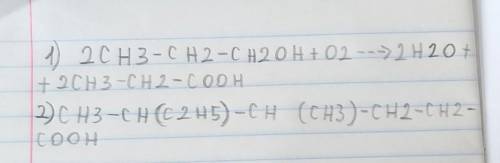 1) 2CH3-CH2-CH2OH+O2 --> 2H2O+
+2CH3-CH2-COOH
2) CH3-CH(C2H5)-CH (CH3)-CH2-CH2-
COOH